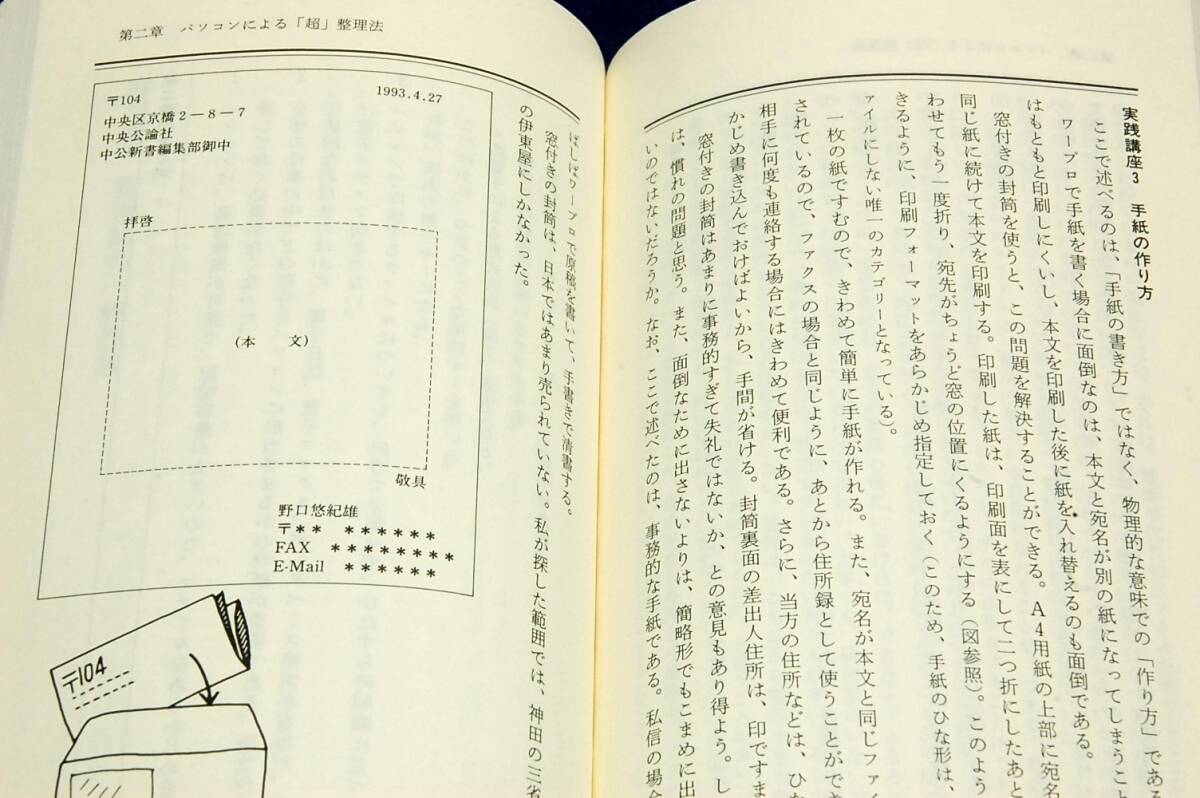 実践講座3　手紙の作り方
ここで述べるのは、「手紙の書き方」ではなく、物理的な意味での「作り方」である
ワープロで手紙を書く場合に面倒なのは、本文と宛名が別の紙になってしまうこと
はもともと印刷しにくいし、本文を印刷した後に紙を入れ替えるのも面倒である。
窓付きの封筒を使うと、この問題を解決することができる。A4用紙の上部に宛名
同じ紙に続けて本文を印刷する。印刷した紙は、印刷面を表にして二つ折にしたあと
わせてもう一度折り、宛先がちょうど窓の位置にくるようにする（図参照）。このよう
きるように、印刷フォーマットをあらかじめ指定しておく（このため、手紙のひな形は、
ァイルにしない唯一のカテゴリーとなっている）。
一枚の紙ですむので、きわめて簡単に手紙が作れる。また、宛名が本文と同じファイ
されているので、ファクスの場合と同じように、あとから住所録として使うことができ
相手に何度も連絡する場合にはきわめて便利である。さらに、当方の住所などは、ひな
かじめ書き込んでおけばよいから、手間が省ける。封筒裏面の差出人住所は、印ですま
窓付きの封筒はあまりに事務的すぎて失礼ではないか、との意見もあり得よう。し
は、慣れの問題と思う。また、面倒なために出さないよりは、簡略形でもこまめに出
いのではないだろうか。なお、ここで述べたのは、事務的な手紙である。私信の場合
第二章　パソコンによる「超」整理法
ばしばワープロで原稿を書いて、手書きで清書する。
窓付きの封筒は、日本ではあまり売られていない。私が探した範囲では、神田の三省
の伊東屋にしかなかった。
1993.4.27
〒104
中央区京橋2－8－7
中央公論社
中公新書編集部御中
拝啓
(本　文)
敬具
野口悠紀雄
〒＊＊　＊＊＊＊＊＊
FAX　＊＊＊＊＊＊＊＊
E-Mail　＊＊＊＊＊＊
〒104